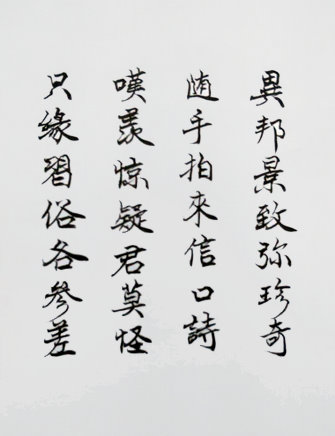 異邦景致弥珍奇
随手拍來信口詩
嘆羨惊疑君莫怪
只緣習俗各參差